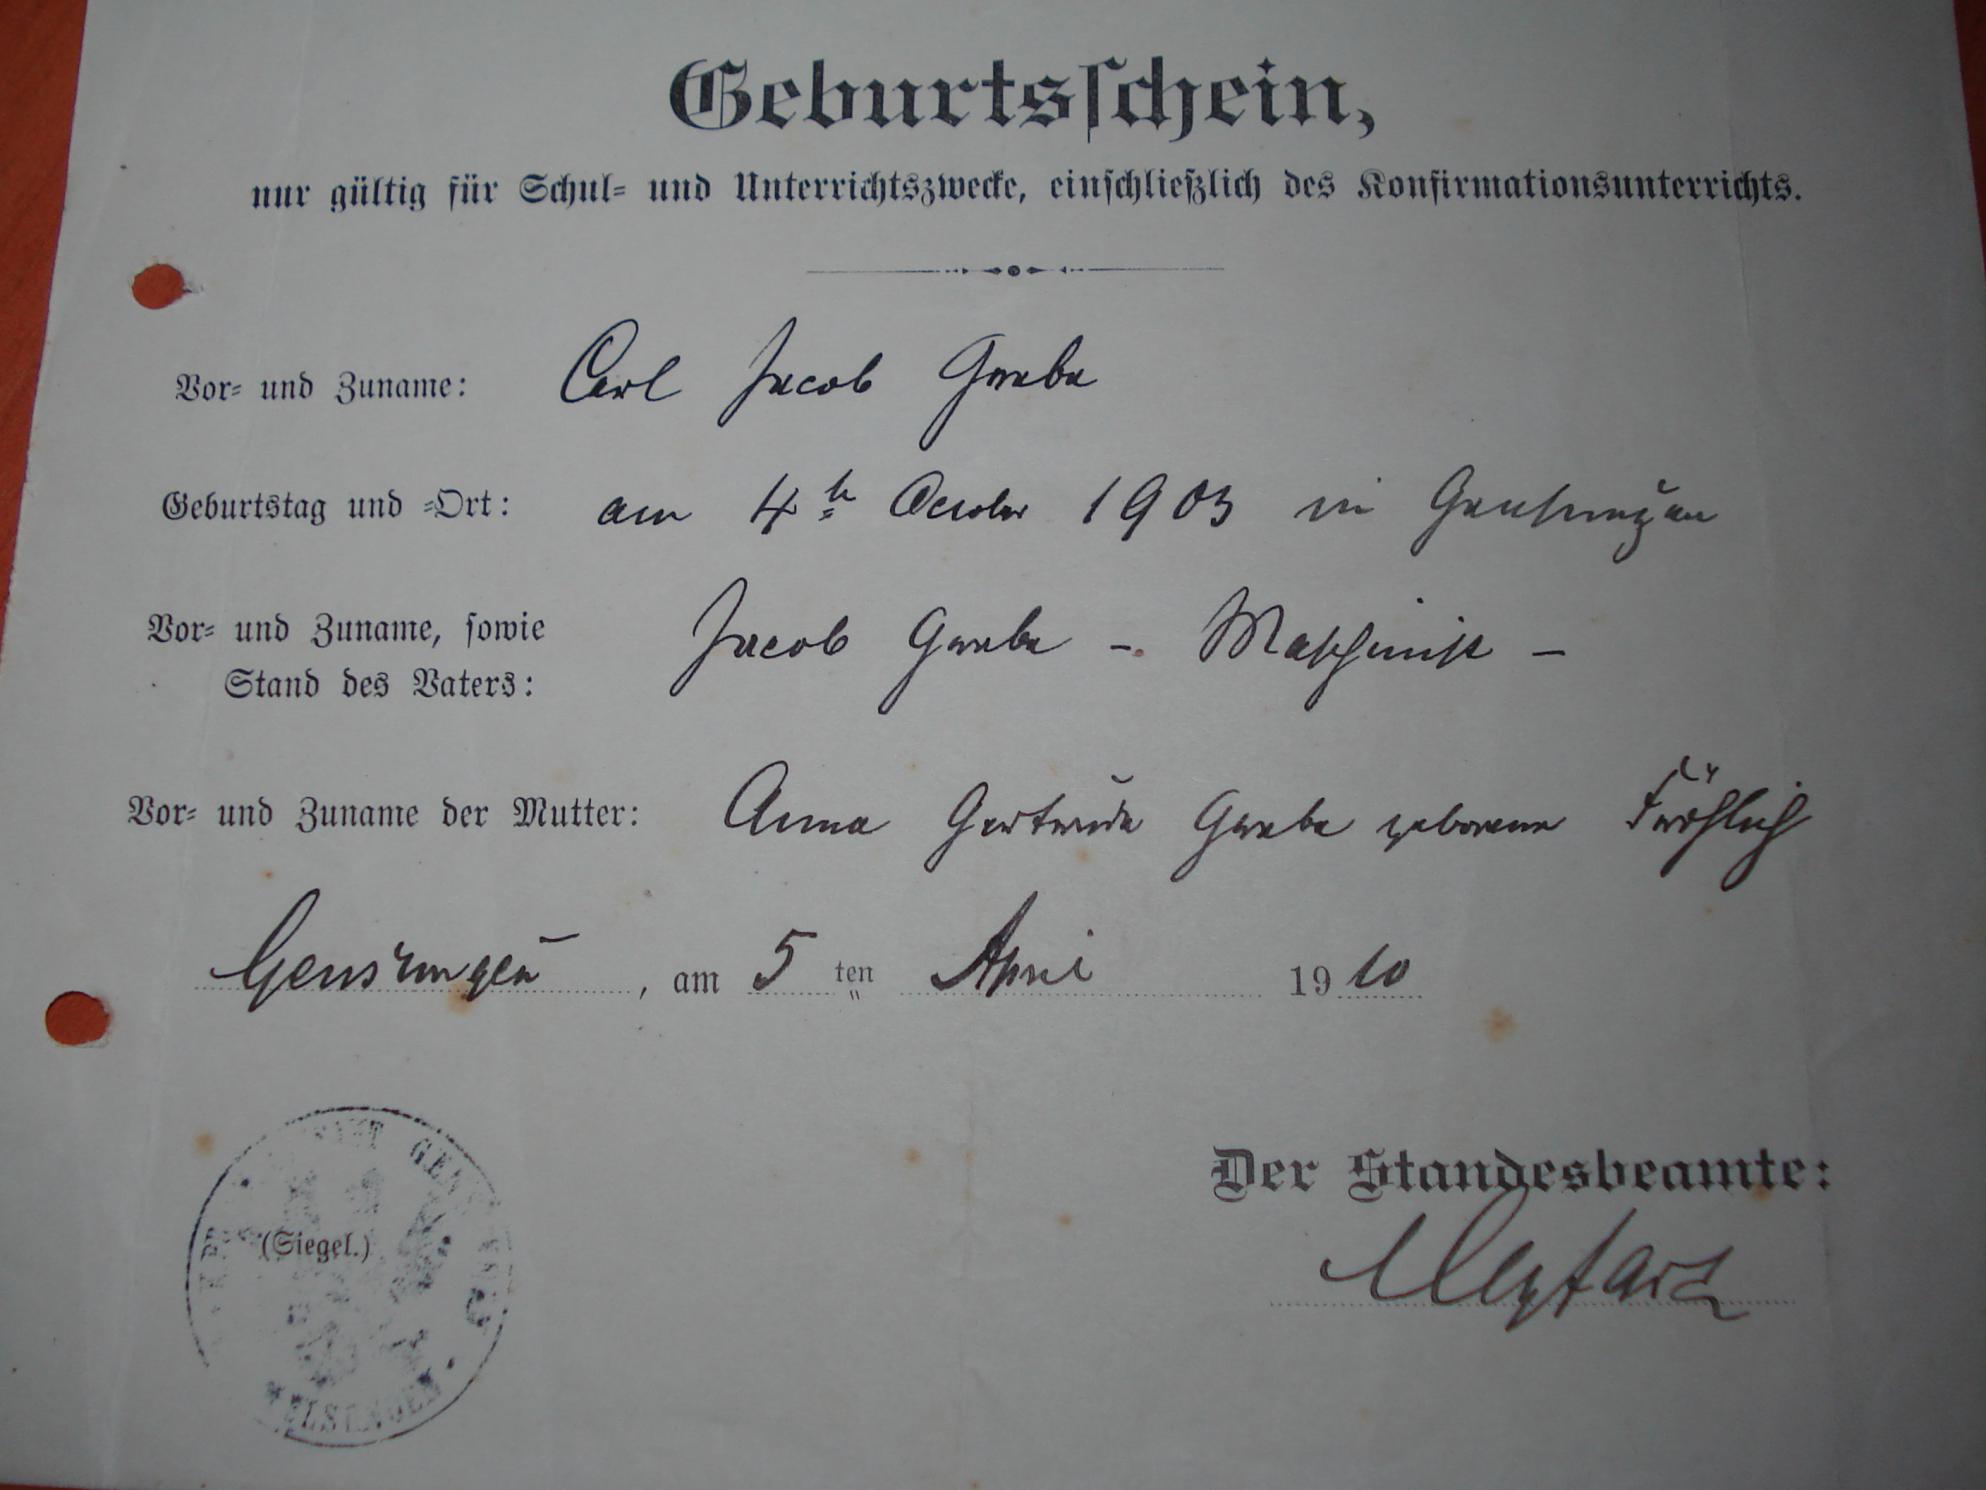 Geburtsschein,
nur gültig für Schul= und Unterrichtszwecke, einschließlich des Konfirmationsunterrichts.
Vor= und Zuname: Carl Jacob Grebe
Geburtstag und =Ort: am 4ten October 1903 in Gensungen
Vor= und Zuname, sowie
Stand des Vaters: Jacob Grebe - Maschinist -
Vor= und Zuname der Mutter: Anna Gertrude Grebe geborene Fröhlich
Gensungen, am 5 ten April 1910
(Siegel.)
MELSUNGEN
Der Standesbeamte: